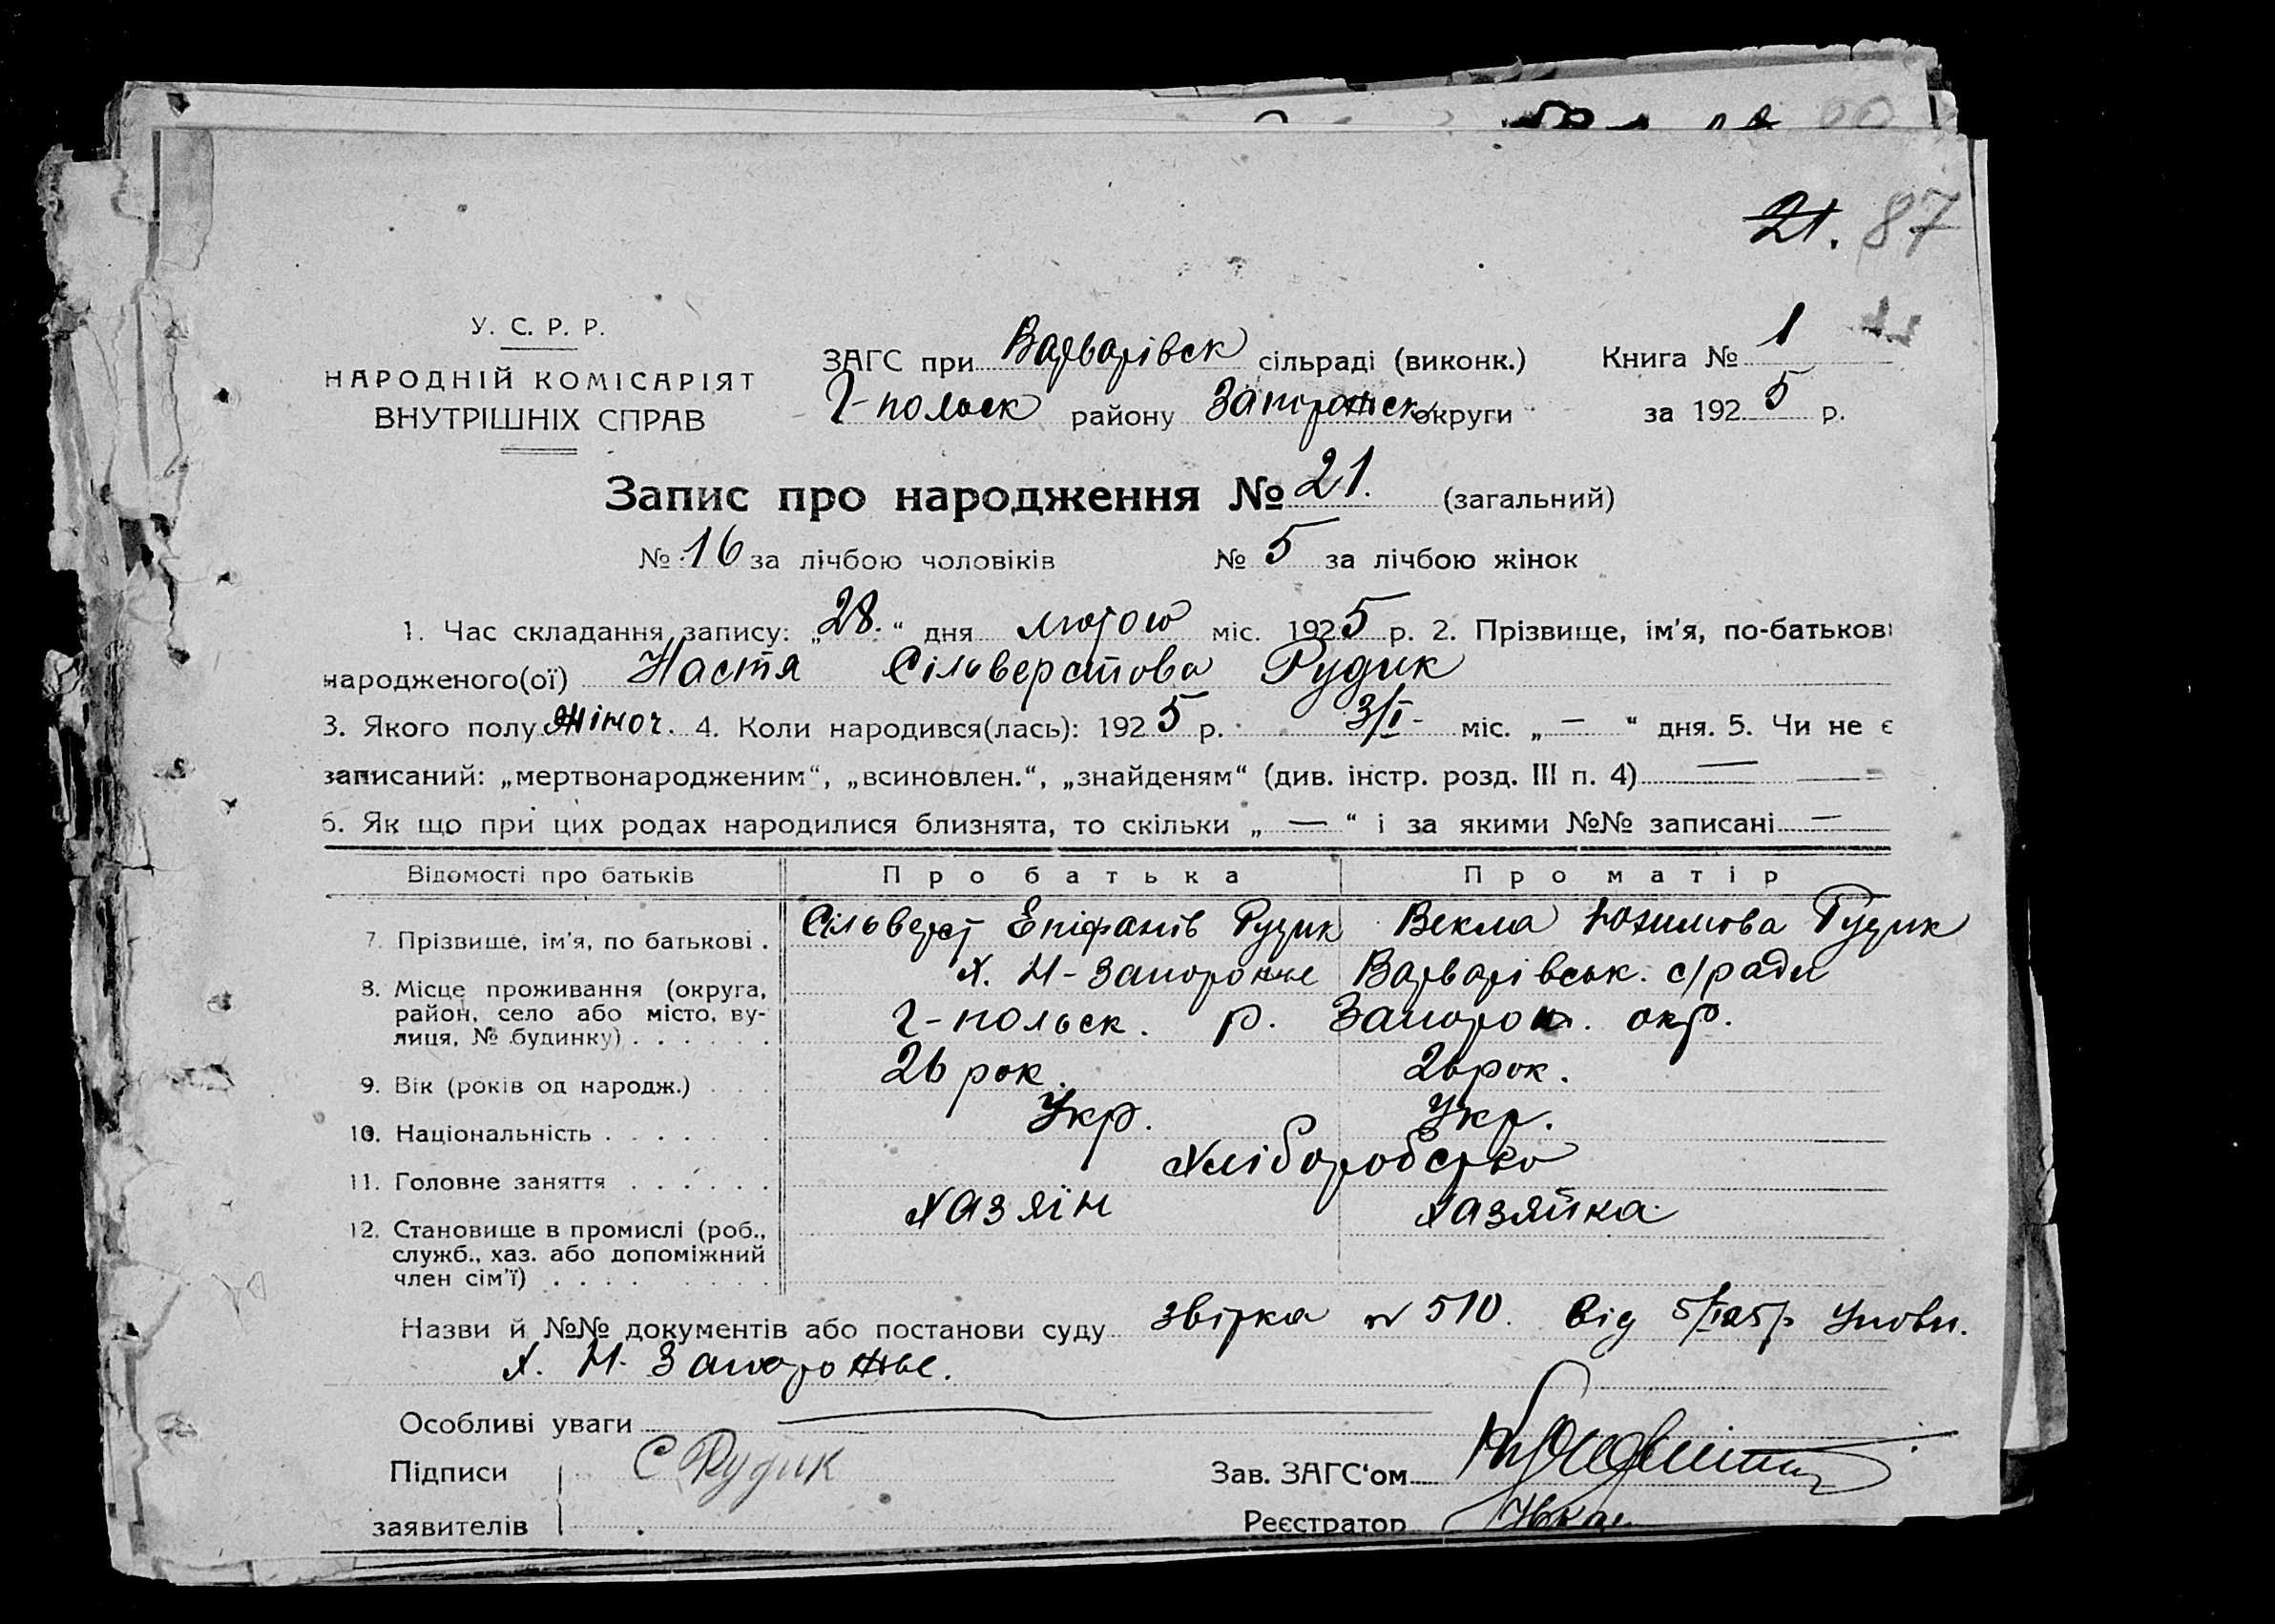 21. 87
У. С. Р. Р.
НАРОДНІЙ КОМІСАРІЯТ
ВНУТРІШНІХ СПРАВ
ЗАГС при Варварівск сільраді (виконк.) Книга № 1
Г-польск району Запоріжск округи за 1925 р.
Запис про народження № 21. (загальний)
№ 16 за лічбою чоловіків № 5 за лічбою жінок
1. Час складання запису: „28.“ дня лютого міс. 1925 р. 2. Прізвище, ім’я, по-батькові
народженого(ої) Настя Сільверстова Рудик
3. Якого полу жіноч. 4. Коли народився(лась): 1925 р. 3/I- міс. „—“ дня. 5. Чи не є
записаний: „мертвонародженим“, „всиновлен.“, „знайденям“ (див. інстр. розд. III п. 4) —
6. Як що при цих родах народилися близнята, то скільки „—“ і за якими №№ записані —
Відомості про батьків Про батька Про матір
7. Прізвище, ім’я, по батькові . Сільверст Епіфанів Рудик Векла Юхимова Рудик
8. Місце проживання (округа, Х. Н-Запорожье Варварівськ. с/ради
район, село або місто, ву-
лиця, № будинку) . . . . . . Г-польск. р. Запорож. окр.
9. Вік (років од народж.) . . . 26 рок. 26 рок.
10. Національність . . . . . . Укр. Укр.
11. Головне заняття . . . . . . Хліборобство
12. Становище в промислі (роб., хазяїн хазяйка
служб., хаз. або допоміжний
член сім’ї) . . . . . . . .
Назви й №№ документів або постанови суду звірка № 510. від 5/I 25 р Уповн.
Х. Н-Запорожье.
Особливі уваги —
Підписи С Рудик Зав. ЗАГС‘ом
заявителів Реєстратор